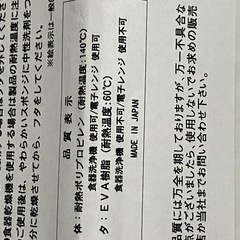 の食器乾燥機を使用する場合は製品の耐熱温度に
ご使用後は、やわらかいスポンジに中性洗剤をつ
分に乾燥させてから、フタをしてください。
※絵表示は一般
品質表示
体：耐熱ポリプロピレン（耐熱温度：140℃）
食器洗浄機 使用可/電子レンジ 使用可
タ：EVA樹脂（耐熱温度：90℃）
食器洗浄機 使用可/電子レンジ 使用不可
MADE IN JAPAN
品質には万全を期しておりますが、万一不具合な
点がございましたら、使用しないでお求めの販売
店か当社までお問い合わせ下さい。